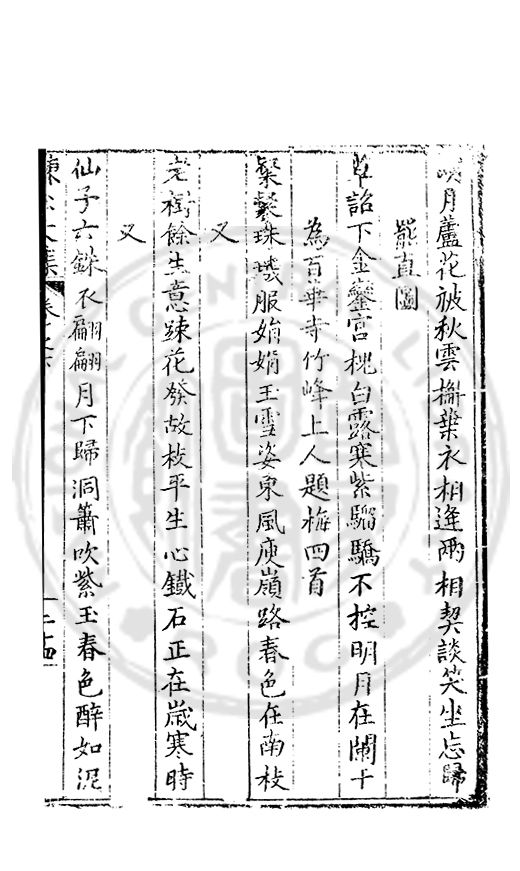 明月蘆花被秋雲槲葉衣相逢兩相契談笑坐忘歸
罷直圖
草詔下金鑾宮桃白露寒紫騮驕不控明月在闌干
為百華寺竹峰上人題梅四首
粲粲珠璣服娟娟玉雪姿東風庾嶺路春色在南枝
又
老樹餘生意踈花發故枝平生心鐵石正在歲寒時
又
仙子六銖衣翩翩月下歸洞簫吹紫玉春色醉如泥